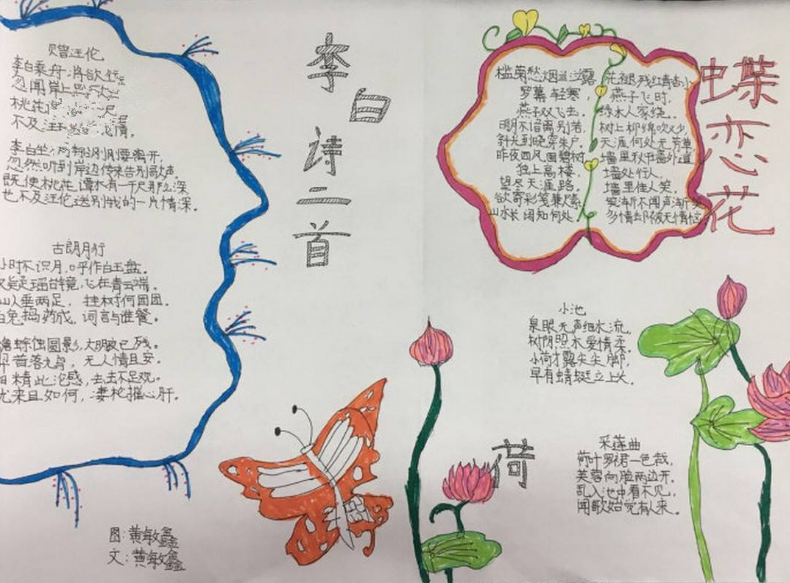 赠汪伦
李白乘舟,将欲
忽闻岸上
桃花
不及汪 情。
忽然听到岸边传来告别歌声。
既使桃花谭水有一千尺那么深
也不及汪伦送别我的一片情深。
古朗月行
小时不识月,呼作白玉盘。
又疑是瑶台镜,飞在青云端。
仙人垂两足, 桂树何团团。
白兔捣药成, 词言与谁餐。
蟾蜍蚀圆影,大明夜已残。
羿昔落九乌, 无人情且安。
阴精此沦感,去去不足观。
忧来且如何, 凄枪摧心肝。
李白诗二首
图:黄敏鑫
文:黄敏鑫
蝶恋花
槛菊愁烟兰泣露
罗幕轻寒,
燕子双飞去。
明月不谙离别苦
斜光到晓穿朱户
昨夜西风凋碧树
独上高楼
望尽天涯路。
欲寄彩笺兼尺素
山水长阔知何处
花褪残红青杏小
燕子飞时,
绿水人家绕。
树上柳绵吹又少,
天涯何处无芳草
墙里秋千墙外道
墙外行人,
墙里佳人笑。
笑渐不闻声渐
多情却被无情恼
荷
小池
泉眼无声细水流,
树阴照水爱情柔。
小荷才露尖尖脚,
早有蜻蜓立上头。
采莲曲
荷叶罗君一色裁,
芙蓉向脸两边开。
乱入池中看不见,
闻歌始觉有人来。